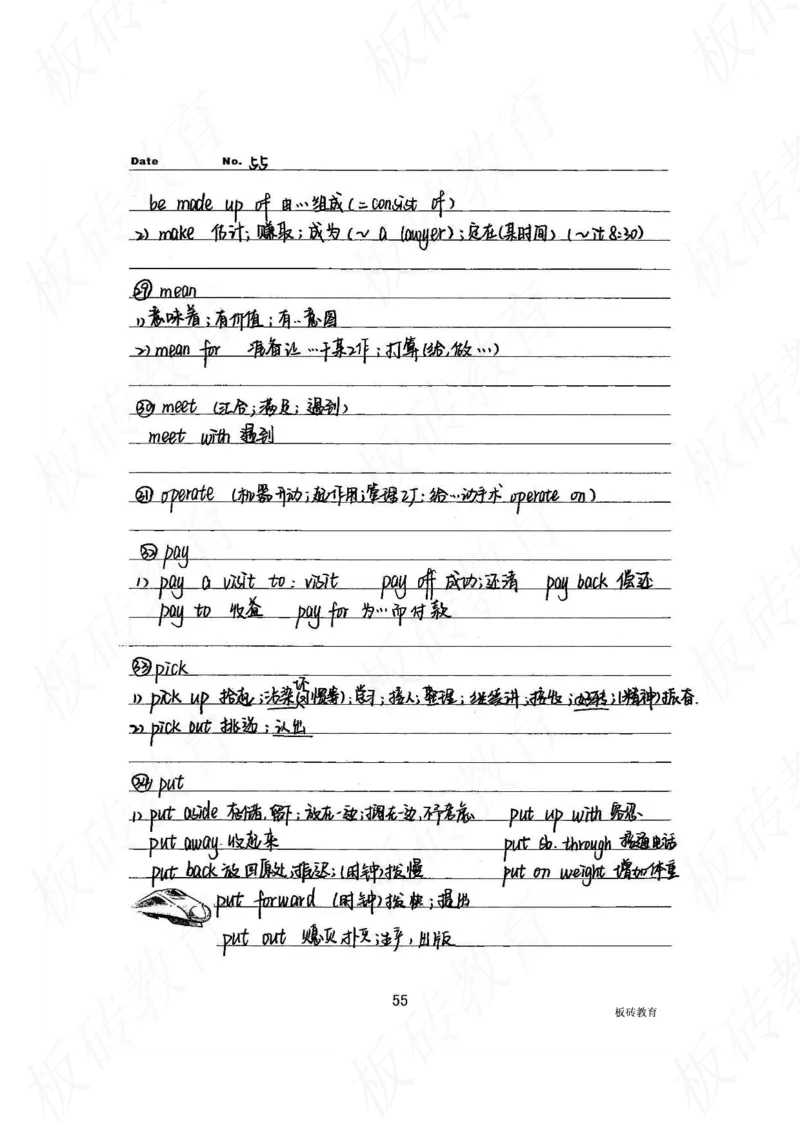 Date No. 55
be made up of 由…组成(=consist of)
2) make 估计;赚取;成为(~ a lawyer);定在(某时间) (~it 8:30)
㉙ mean
1)意味着;有价值;有…意图
2) mean for 准备让…干某工作;打算(给,做…)
㉚ meet (汇合;满足;遇到)
meet with 遇到
㉛ operate (机器开动;起作用;管理;给…动手术 operate on)
㉜ pay
1) pay a visit to: visit pay off 成功;还清 pay back 偿还
pay to 收益 pay for 为…而付款
㉝ pick
1) pick up 拾起;沾染(坏习惯等);学习;接人;整理;继续讲;接收;好转;(精神)振奋.
2) pick out 挑选;认出
㉞ put
1) put aside 存储,留下;放在一边;搁在一边,不予考虑 put up with 容忍
put away 收起来 put sb. through 接通电话
put back 放回原处;推迟;(时钟)拨慢 put on weight 增加体重
put forward (时钟)拨快;提出
put out 熄灭,扑灭;生产,出版
55
板砖教育